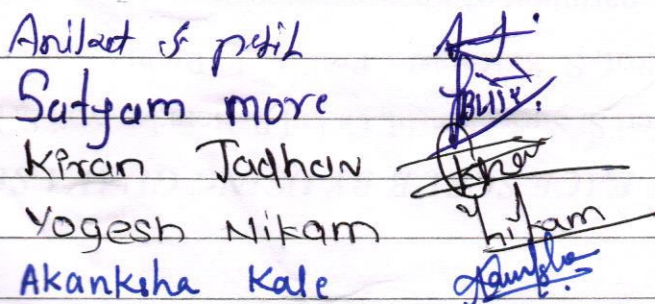 Aniket S patil
Satyam more
Kiran Jadhav
Yogesh Nikam nikam
Akanksha Kale